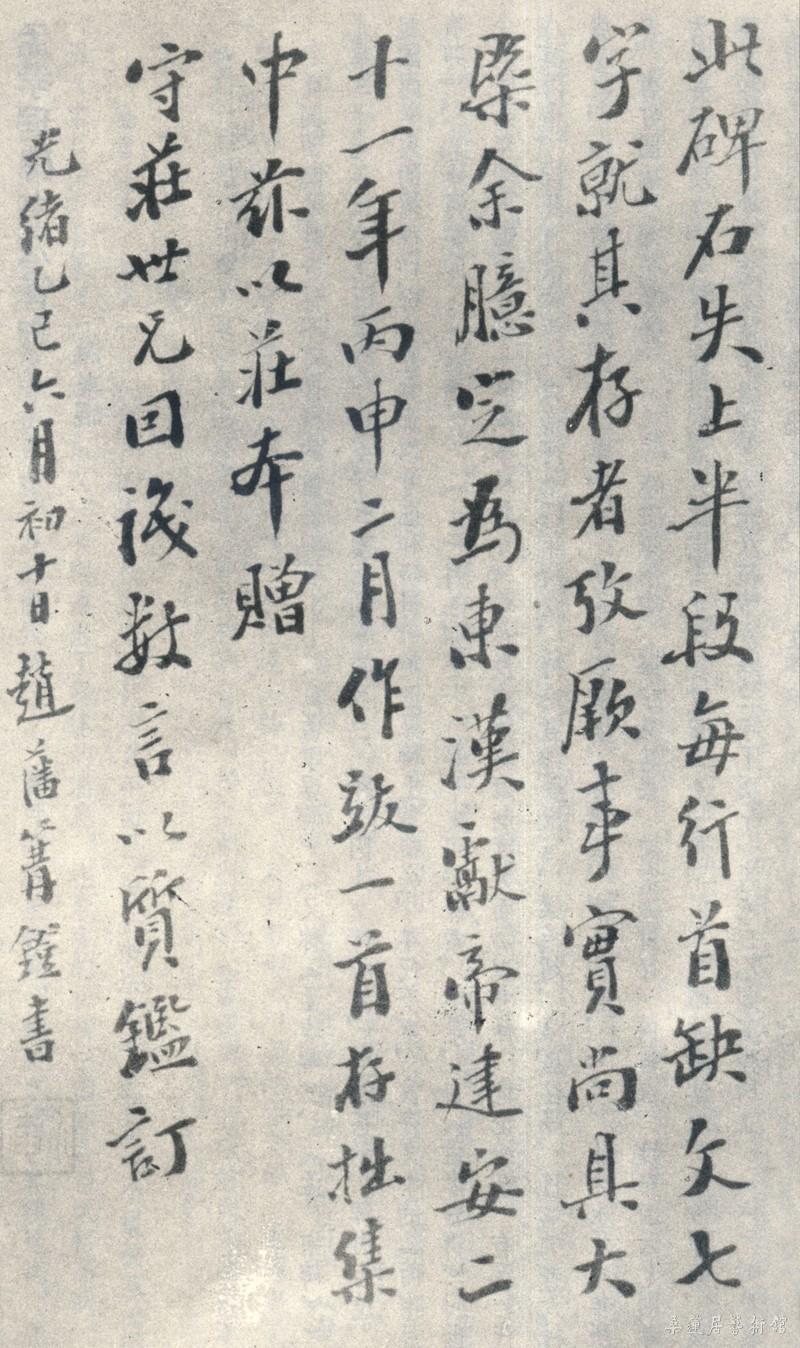 此碑石失上半段每行首缺文七
字就其存者攷厥事實尚具大
槩余臆定為東漢獻帝建安二
十一年丙申二月作跋一首存拙集
中茲以莊本贈
守莊世兄因識數言以質鑑訂
光緒乙巳六月初十日趙藩篝鐙書
桑蓮居藝術館